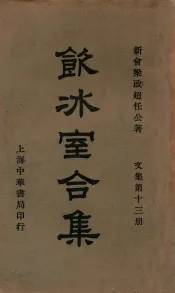 新會梁啟超任公著
文集第十三册
飲冰室合集
上海中華書局印行